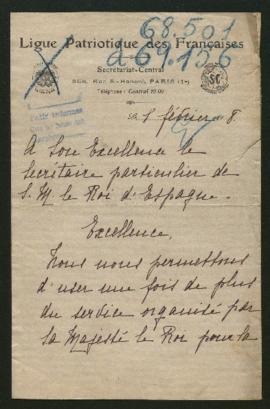 68.501
à 69.156
Ligue Patriotique des Françaises
Secrétariat-Central
PARIS
Téléphone : Central
1 février 8.
A Son Excellence le
Secrétaire particulier de
S. M. le Roi d'Espagne.
Excellence,
Nous nous permettons
d'user une fois de plus
du service organisé par
Sa Majesté le Roi pour la